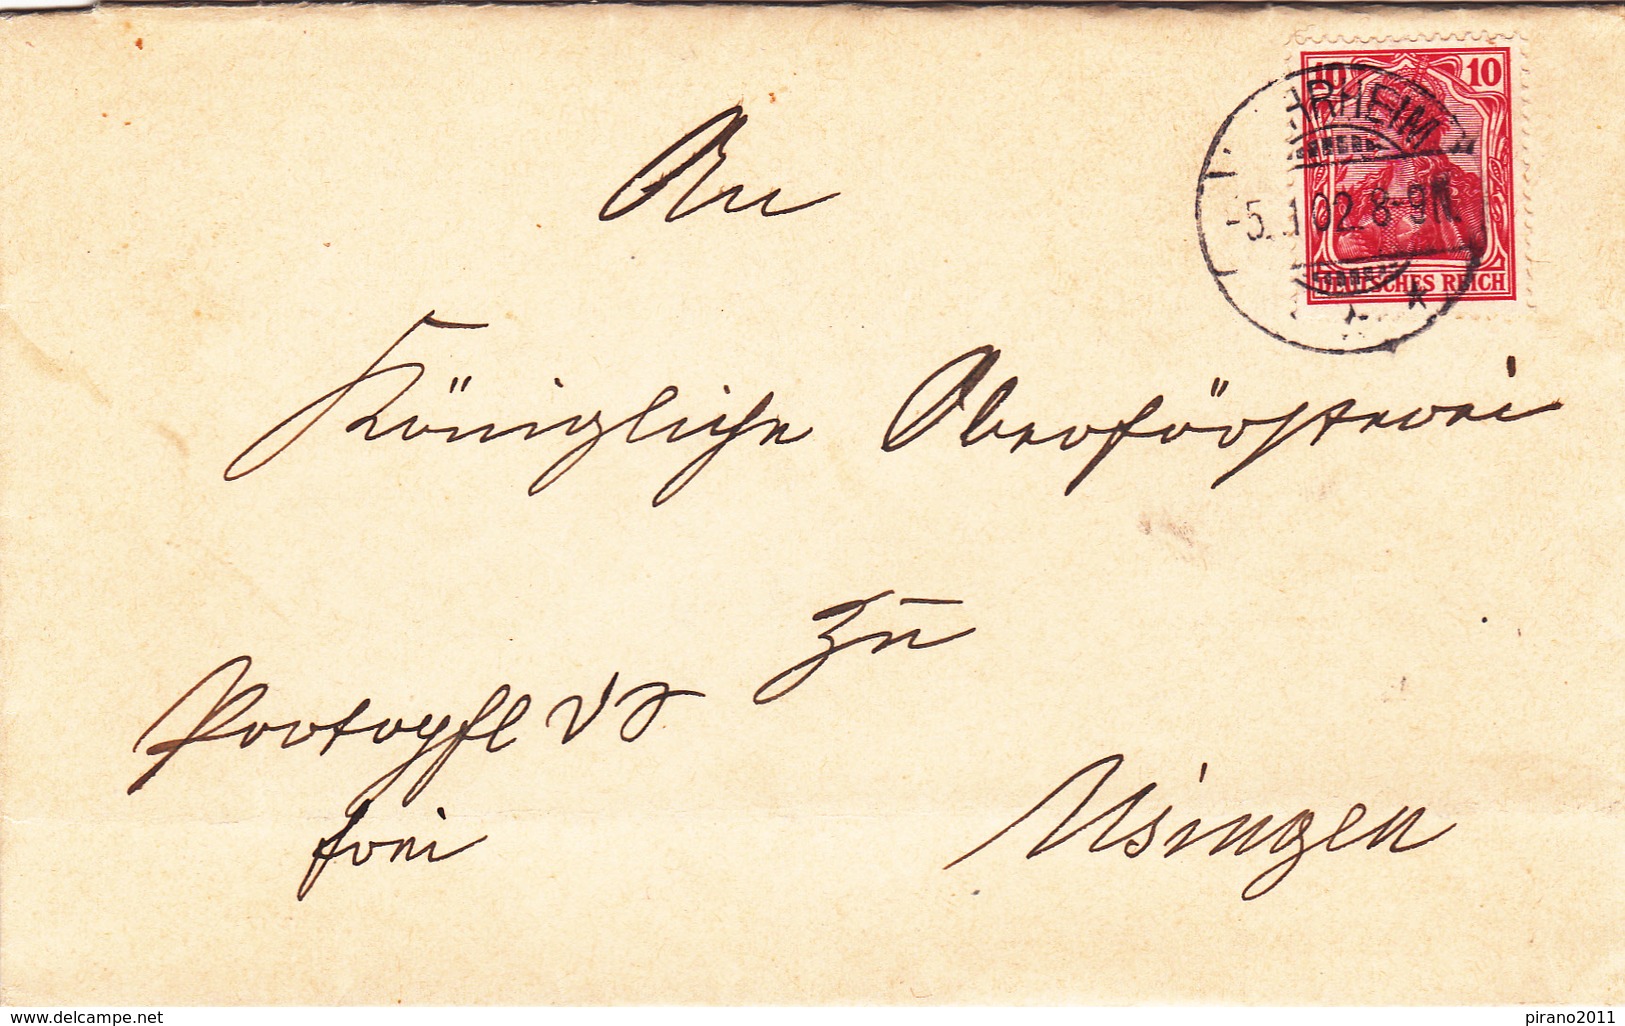 10 10
RHEIM
-5. 1 02. 8-9N.
DEUTSCHES REICH
An
Königliche Oberförsterei
zu
Portopfl
frei
Usingen
www.delcampe.net
pirano2011